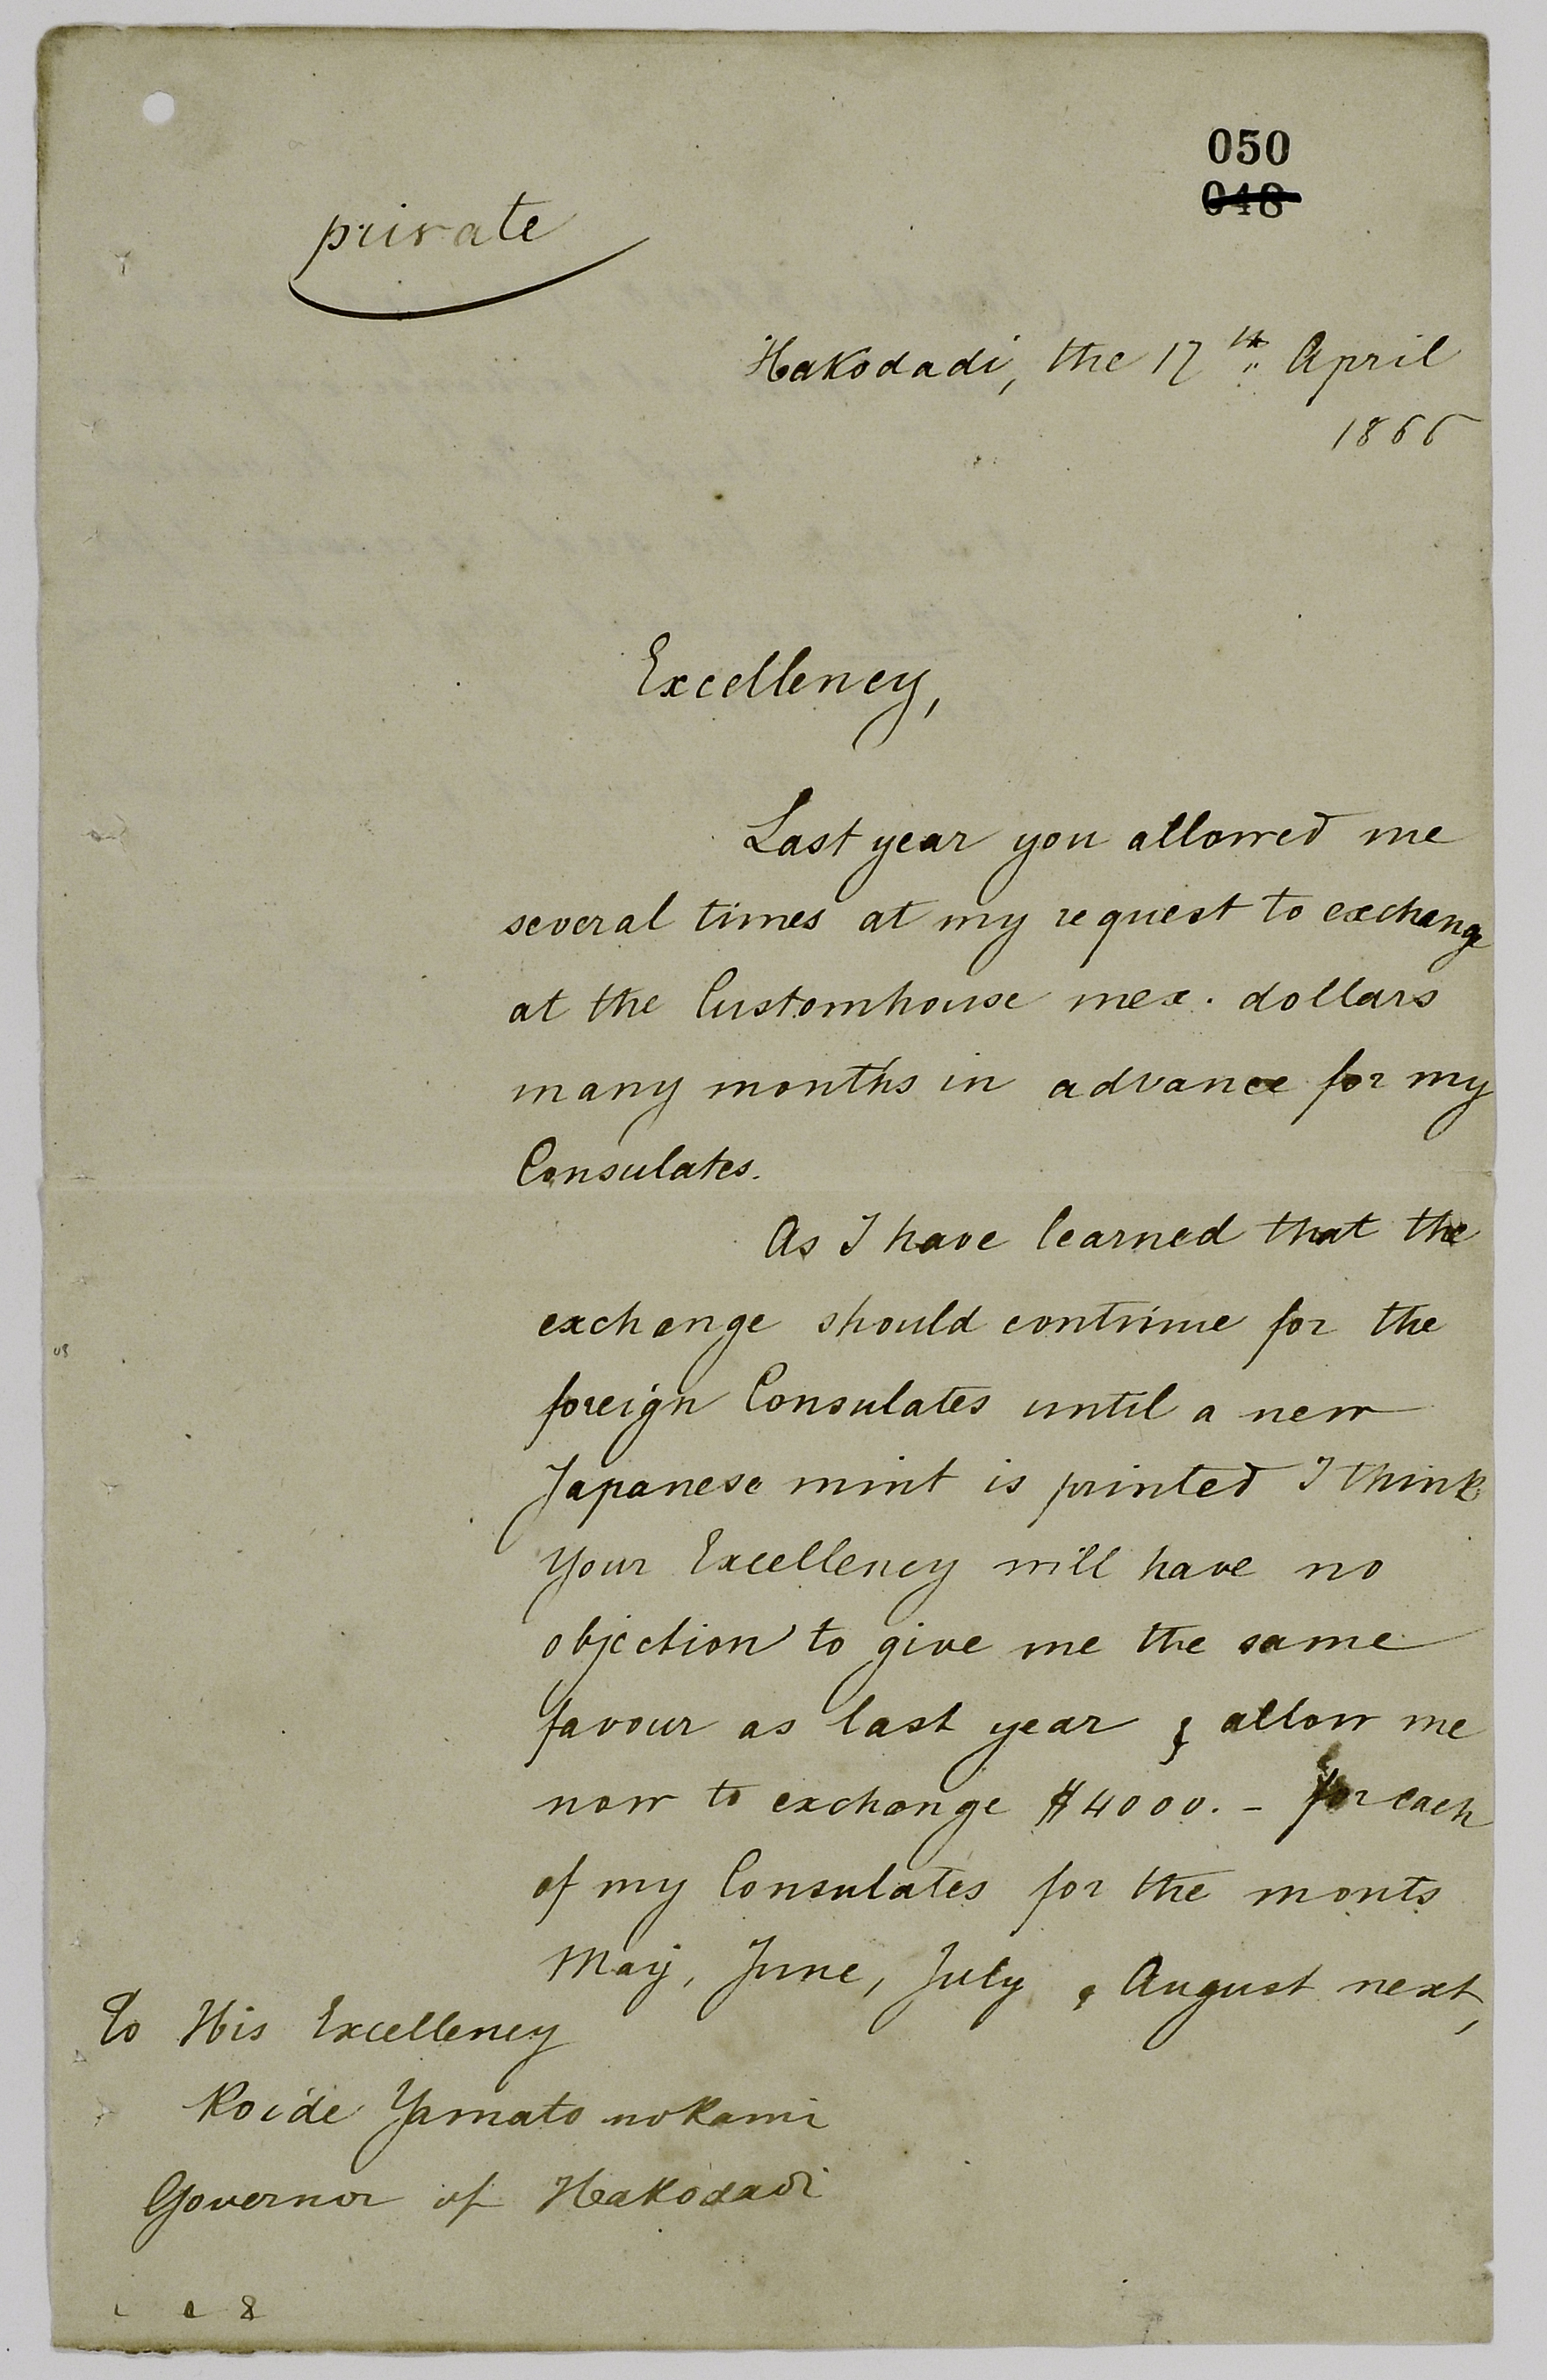 050
048
private
Hakodadi, the 17th April
1866
Excellency,
Last year you allowed me
several times at my request to exchange
at the Customhouse mex. dollars
many months in advance for my
Consulates.
As I have learned that the
exchange should continue for the
foreign Consulates until a new
Japanese mint is printed I think
Your Excellency will have no
objection to give me the same
favour as last year & allow me
now to exchange $4000. – for each
of my Consulates for the monts
May, June, July & August next,
To His Excellency
Koide Yamato nokami
Governor of Hakodadi